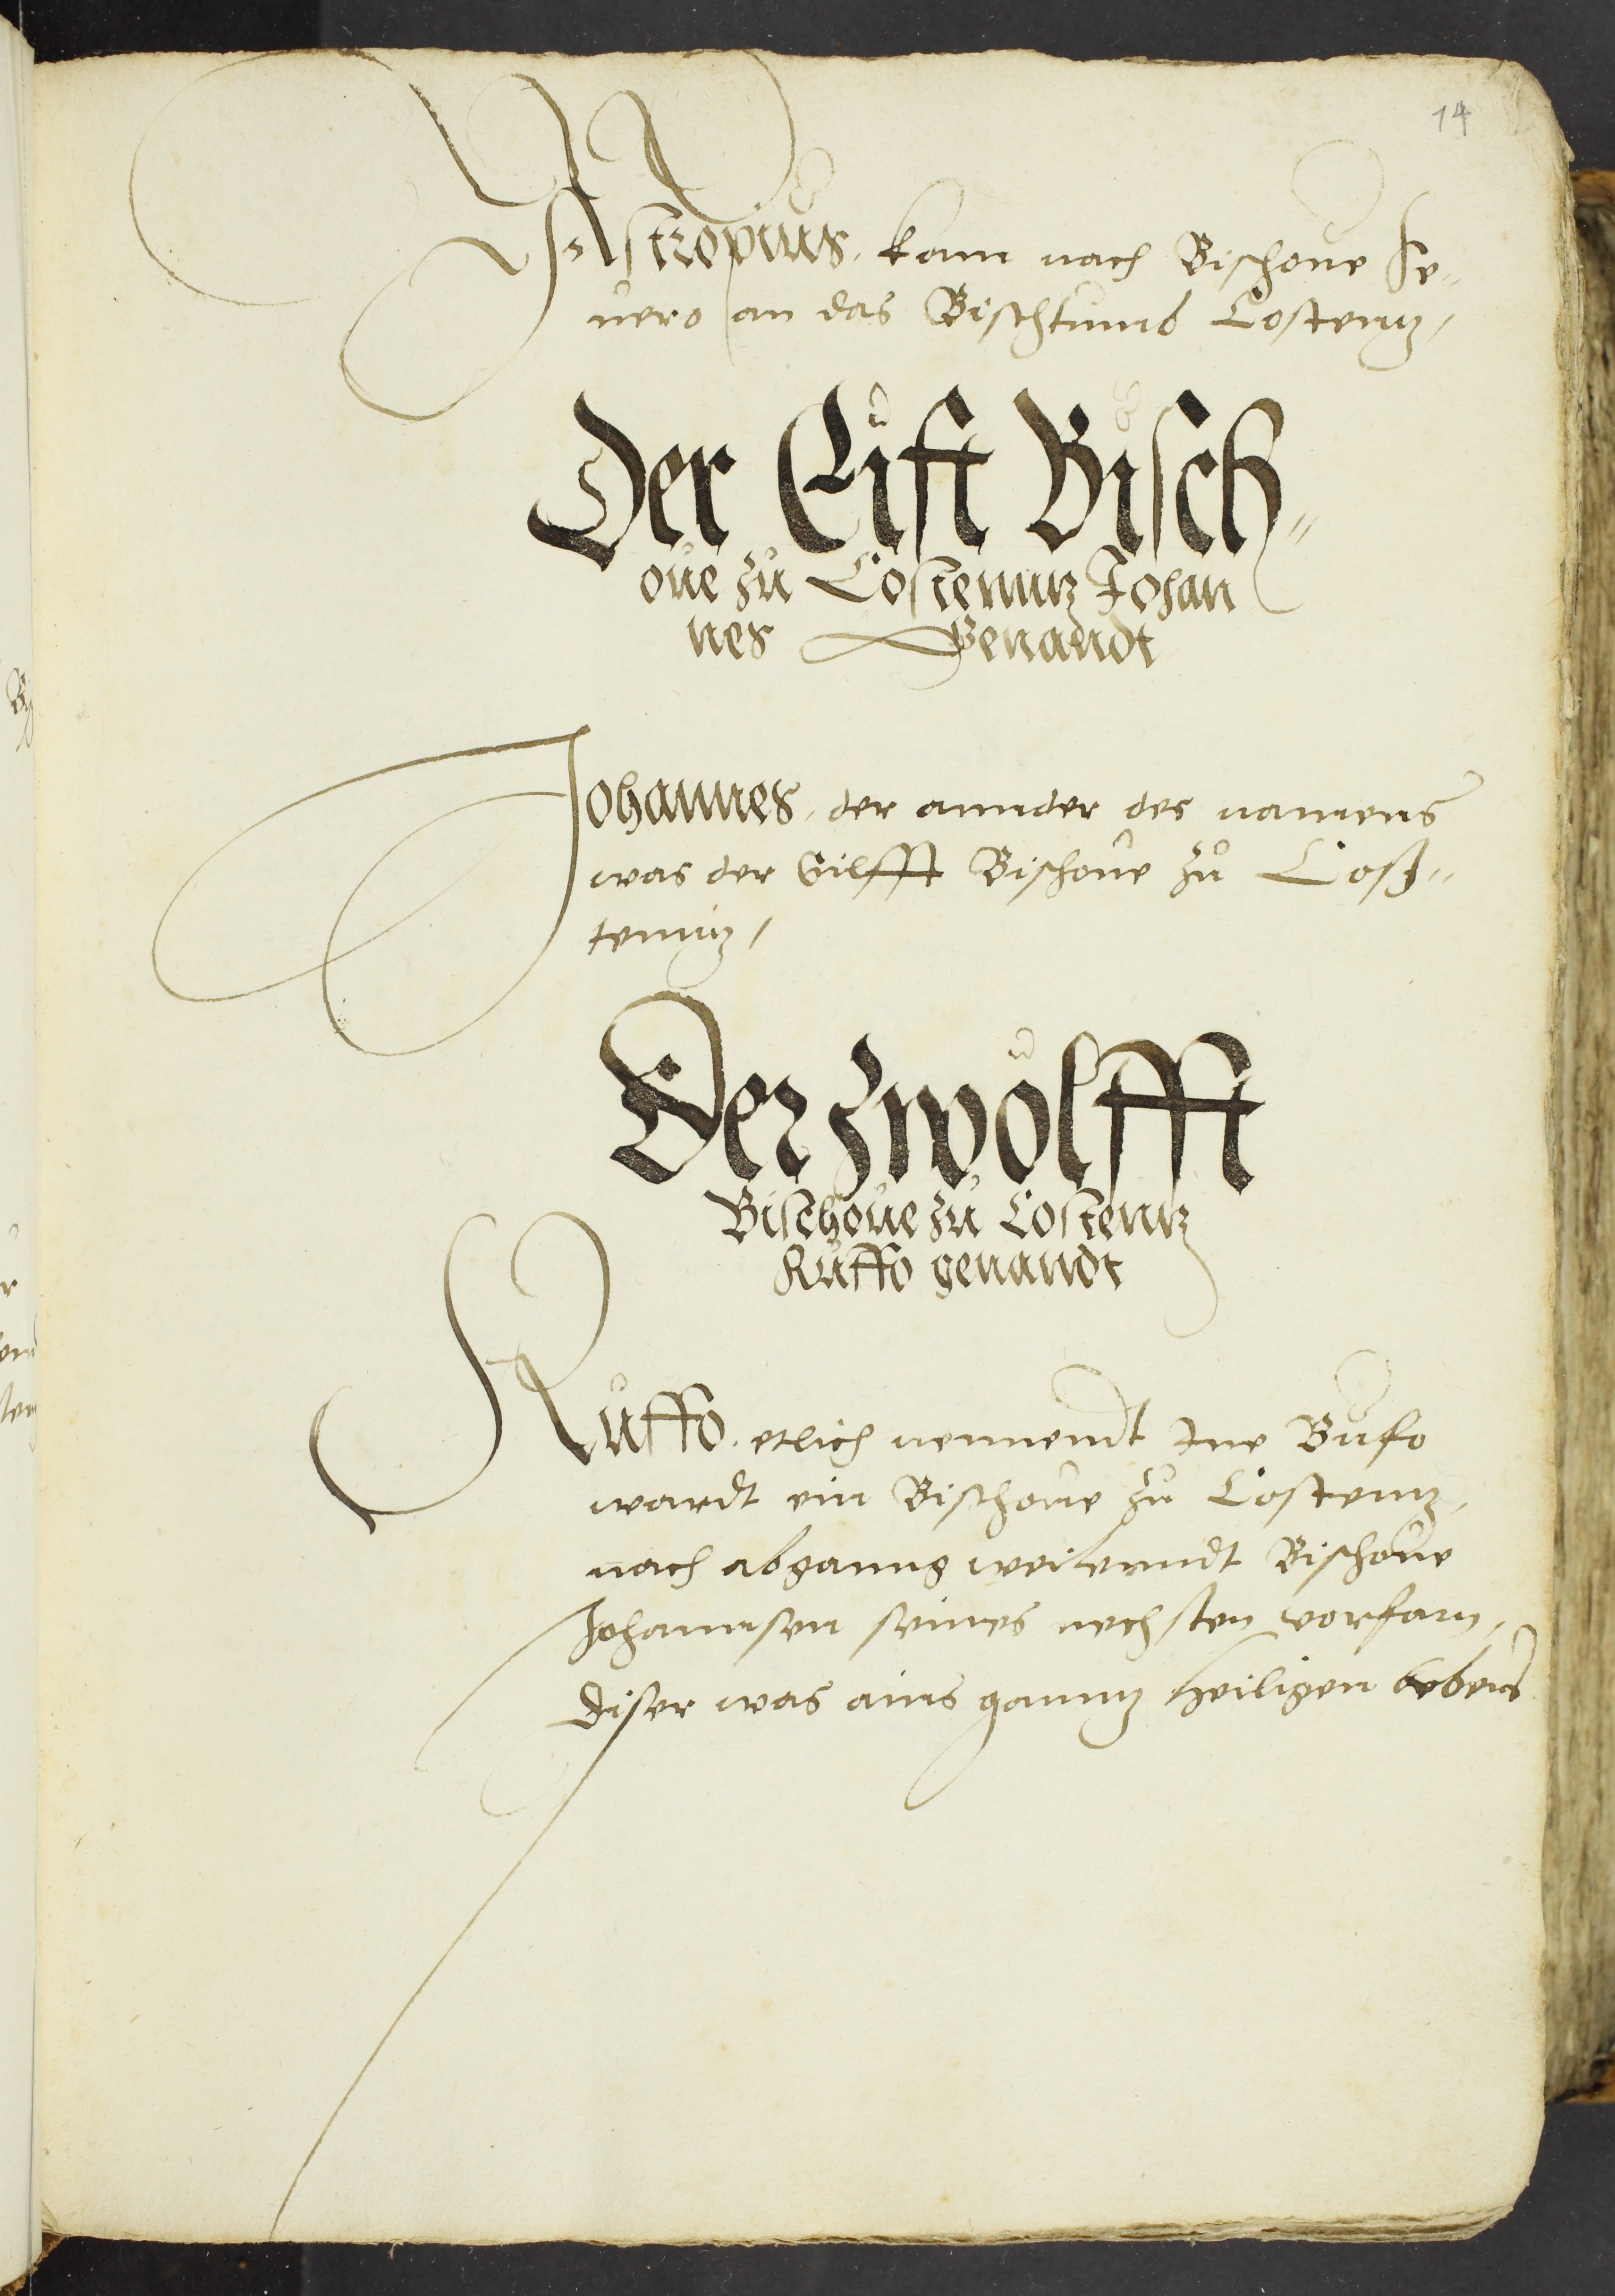 14
Astropius. kam nach Bischoue Se-
uero an das Bischtumb Costenntz,
Der Eift Bisch-
oue zů Costenntz Johan
nes Genandt
Johannes, der annder des namens
was der Eilfft Bischoue zů Coss-
tenntz,
Der zwölfft
Bischoue zů Costentz
Ruffo genandt
Ruffo, etlich nennendt Ine Bufo
wardt ein Bischoue zů Costenntz,
nach abganng weilenndt Bischoue
Johannsen seines nechsten vorfarn,
Diser was ains ganntz heiligen lebens